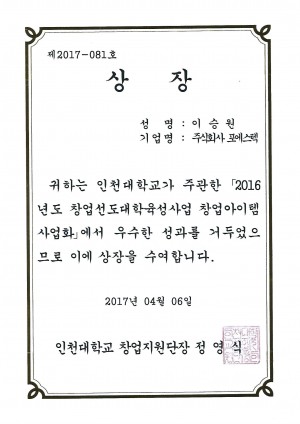 제2017-081호
상 장
성 명 : 이 승 원
기업명 : 주식회사 포에스텍
귀하는 인천대학교가 주관한 「2016
년도 창업선도대학육성사업 창업아이템
사업화」에서 우수한 성과를 거두었으
므로 이에 상장을 수여합니다.
2017년 04월 06일
인천대학교 창업지원단장 정 영 식